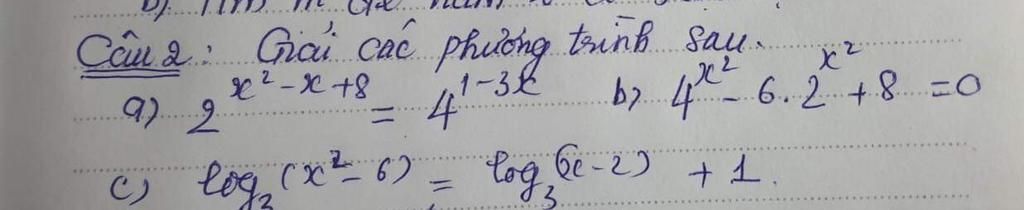 Câu 2: Giải các phương trình sau.
a) 2^{x²-x+8} = 4^{1-3x} b) 4^{x²} - 6.2^{x²} + 8 = 0
c) log₃(x²-6) = log₃(x-2) + 1.